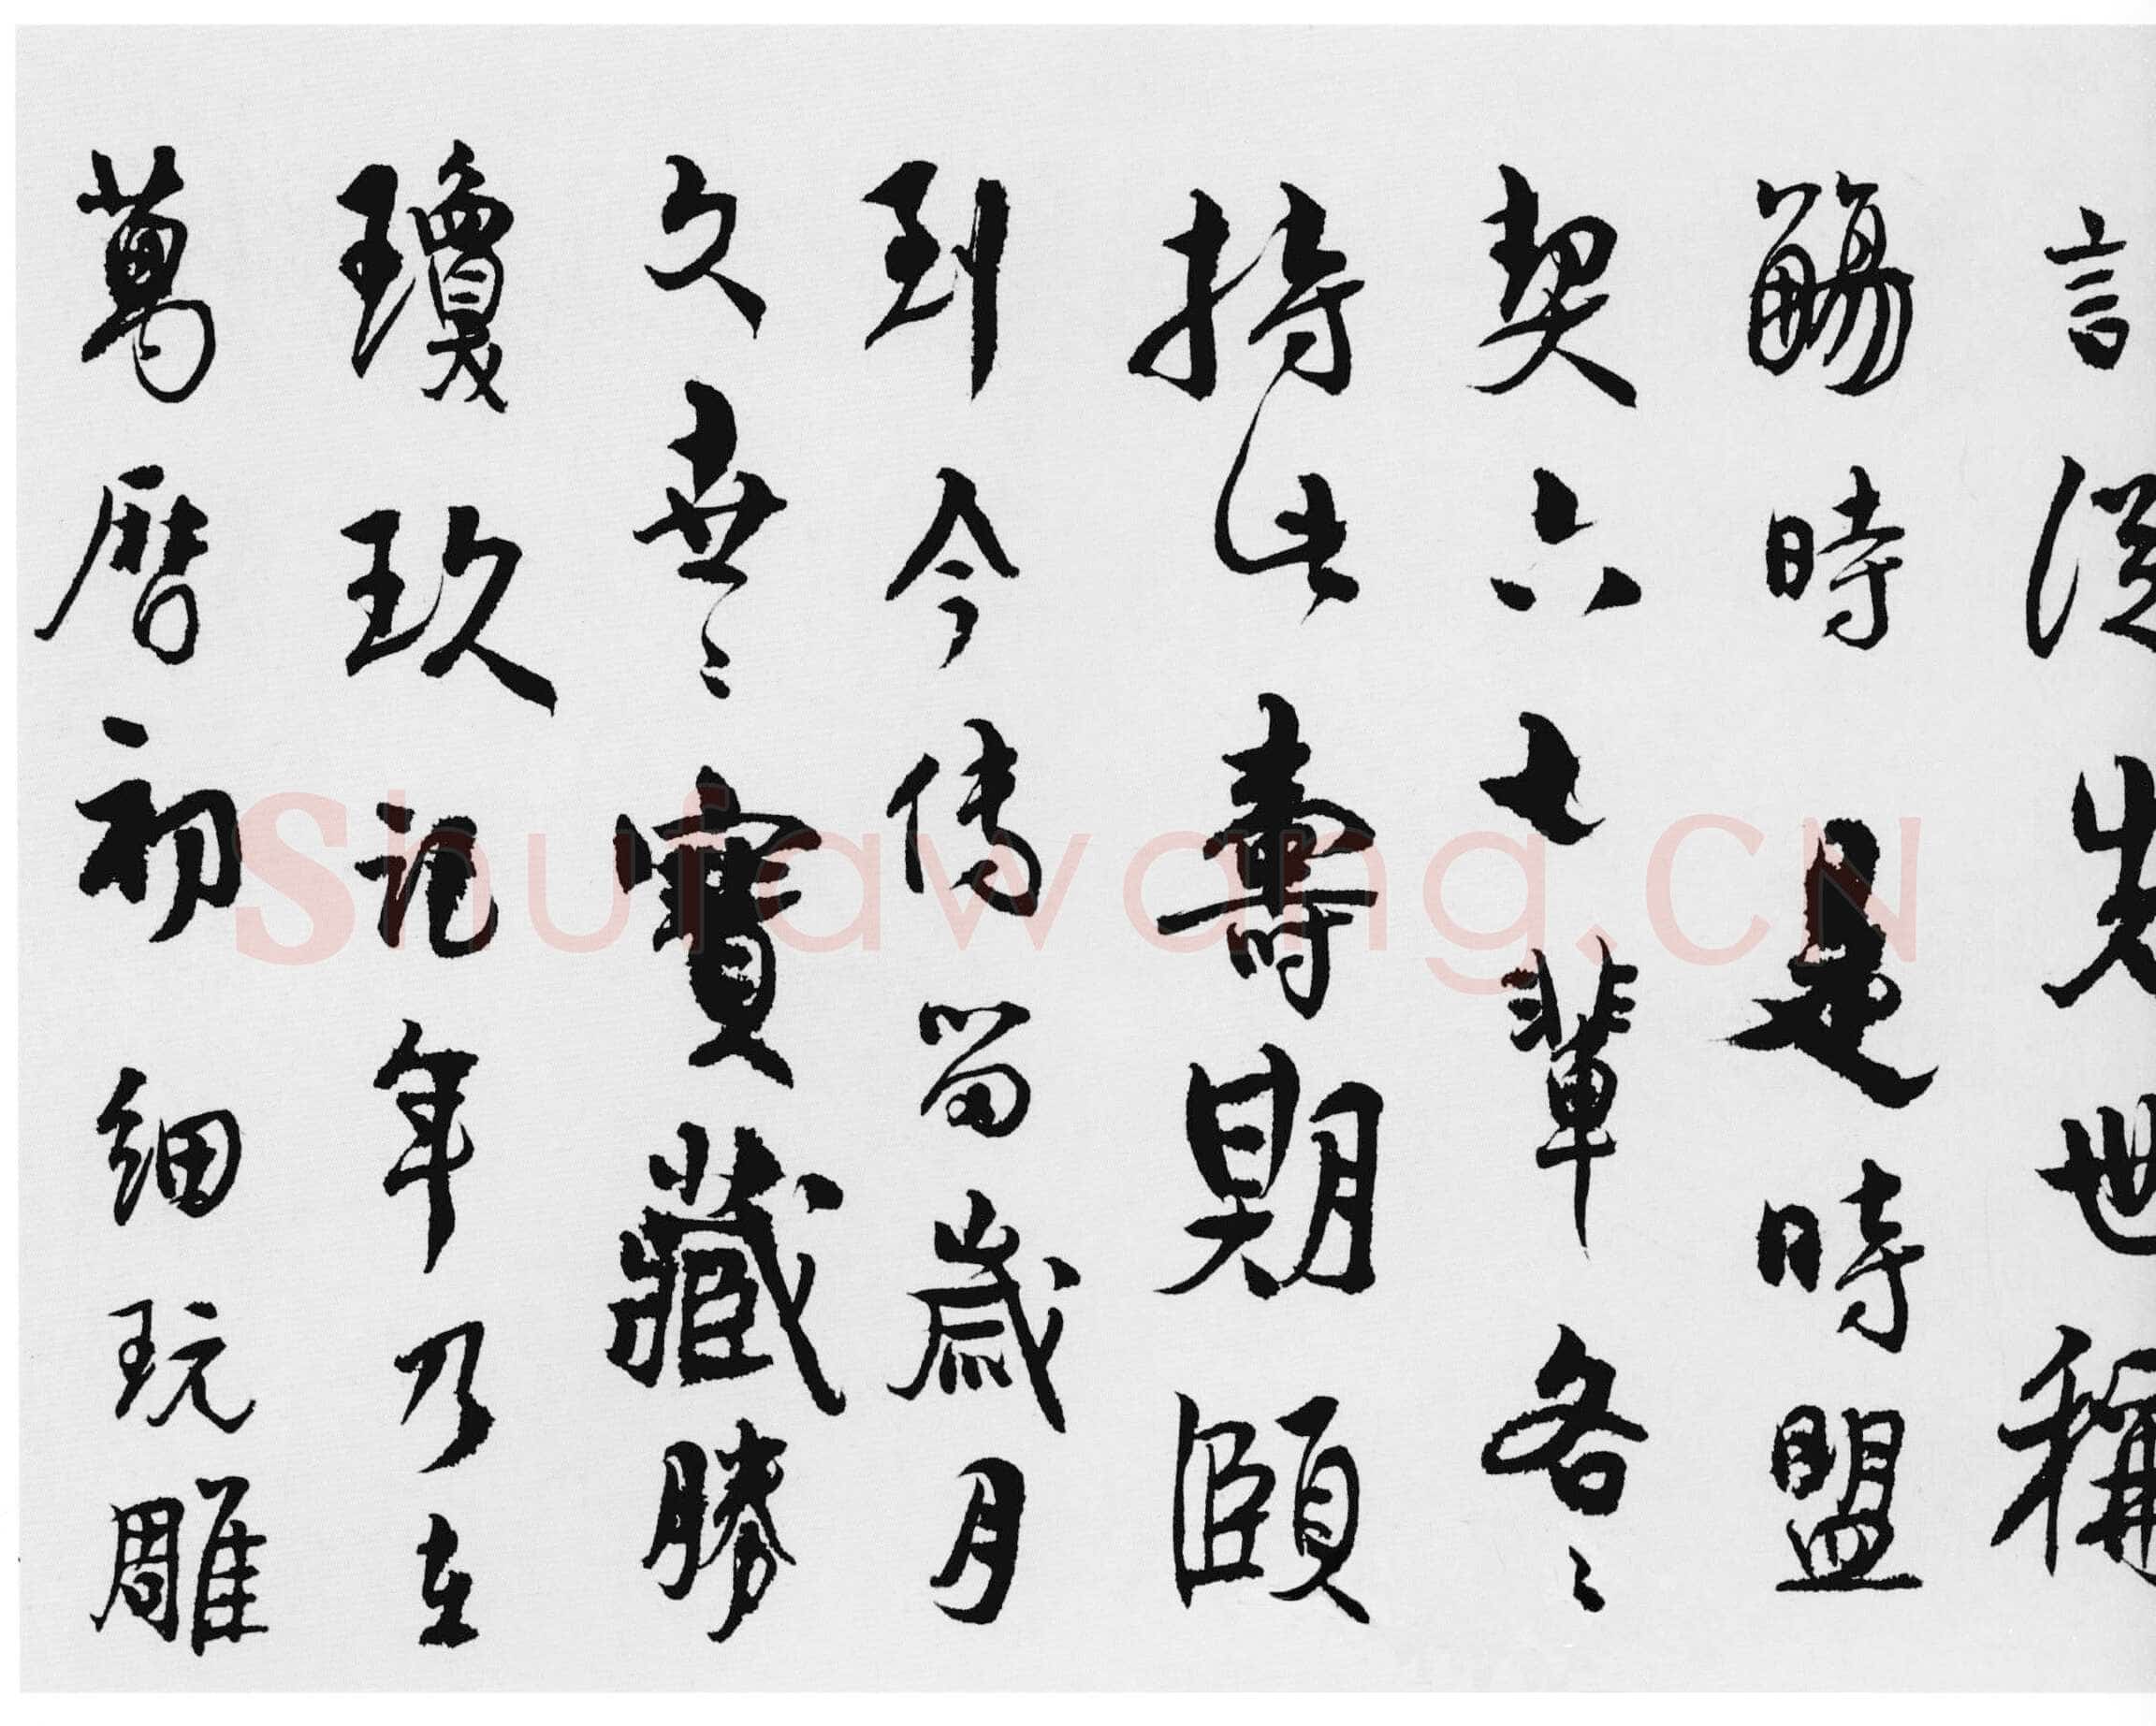 言從先世稱
觴時是時盟
契六七輩各〻
持此壽期頤
到今傳留歲月
久世〻寶藏勝
瓊玖記年乃在
萬曆初細玩雕
Shufawang.CN